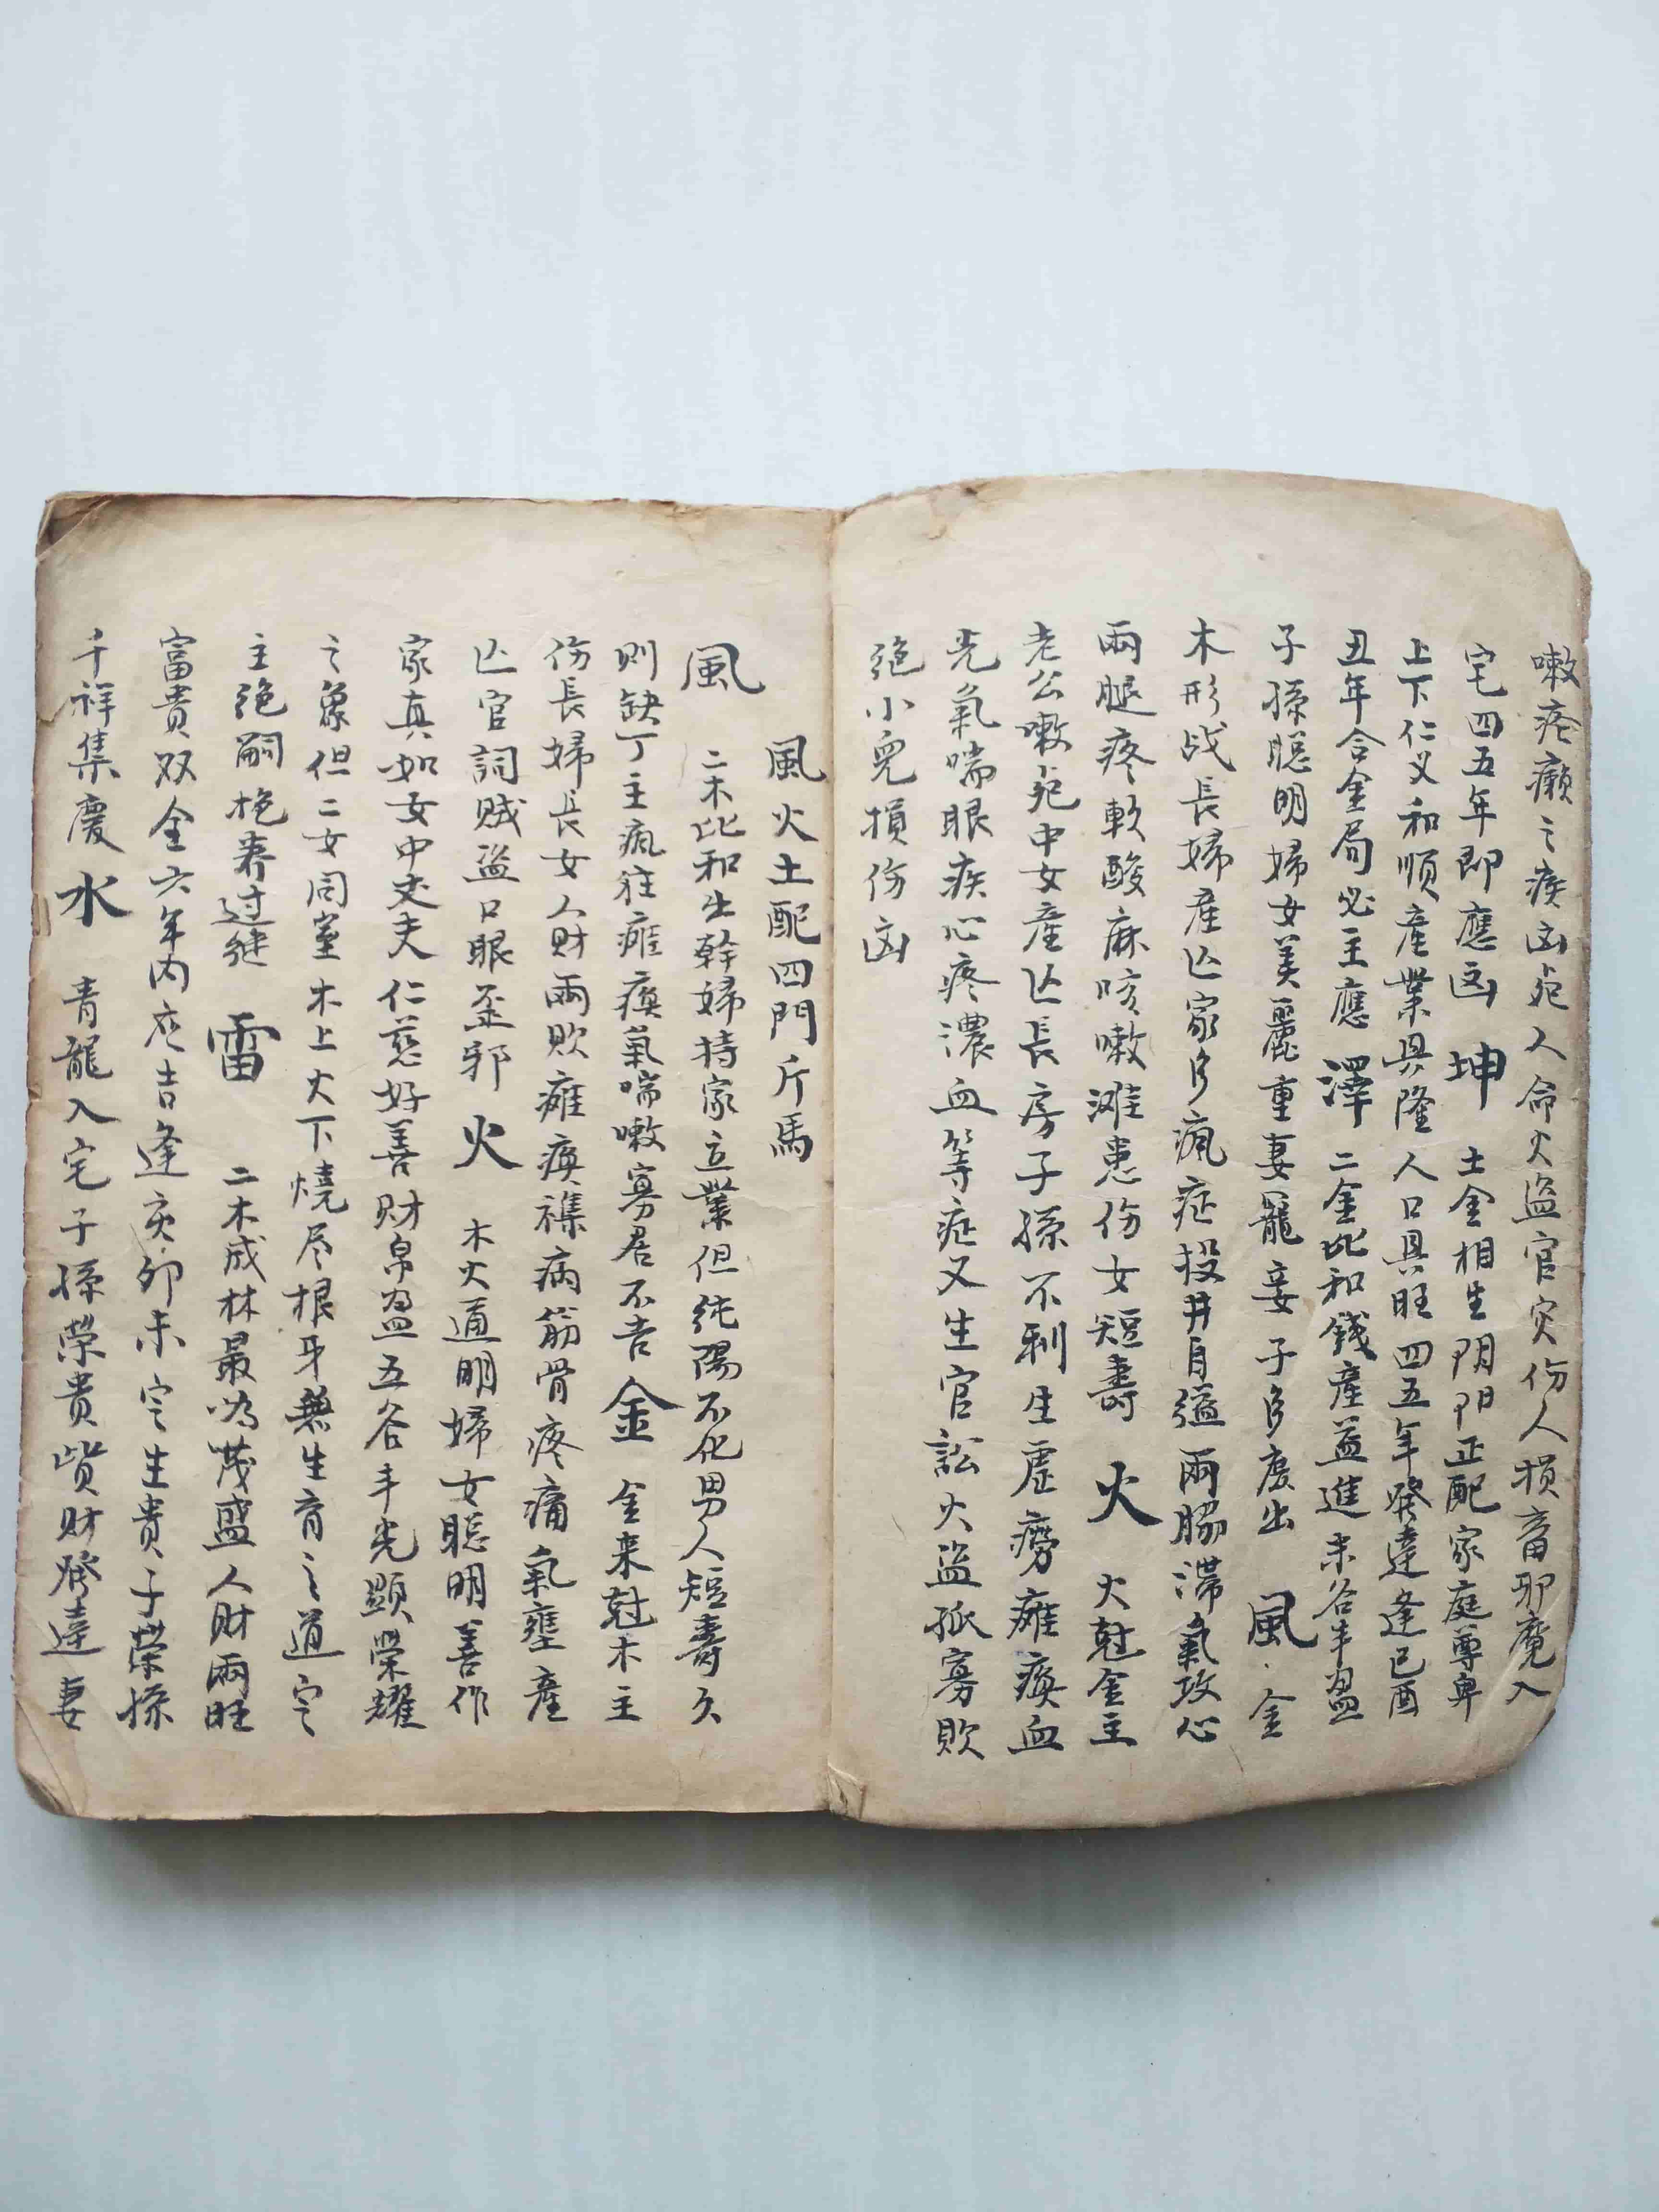 嗽疮癞之疾凶死人命火盗官灾伤人損畜邪魔入
宅四五年即應凶 坤 土金相生阴阳正配家庭尊卑
上下仁义和順產業具隆人口具旺四五年發達逢巳酉
丑年合金局必主應 澤 二金比和錢產益進未谷丰盈
子孫聪明婦女美麗重妻寵妾子多庶出 風 金
木形战長婦產亾家多瘋症投井自缢兩脇滞氣攻心
兩腿疼軟酸麻咳嗽滩患伤女短壽 火 火尅金主
老公嗽死中女產亾長房子孫不利生虚癆癱瘓血
光氣喘眼疾心疼濃血等症又生官訟火盗孤寡敗
絕小兒損伤凶
風火土配四門斤馬
風 二木比和生幹婦持家立業但纯陽不化男人短壽久
則缺丁主瘋狂癱瘓氣喘嗽寡居不吉 金 金来尅木主
伤長婦長女人财兩敗癱瘓襍病筋骨疼痛氣壅產
亾官詞贼盗口眼歪邪 火 木火通明婦女聪明善作
家真如女中丈夫仁慈好善财帛盈五谷丰光顕榮耀
之象但二女同室木上火下燒尽根身無生育之道定
主绝嗣抱养过继 雷 二木成林最為茂盛人财兩旺
富貴双全六年内应吉逢亥卯未定生貴子榮孫
千祥集慶 水 青龍入宅子孫榮貴貲财發達妻